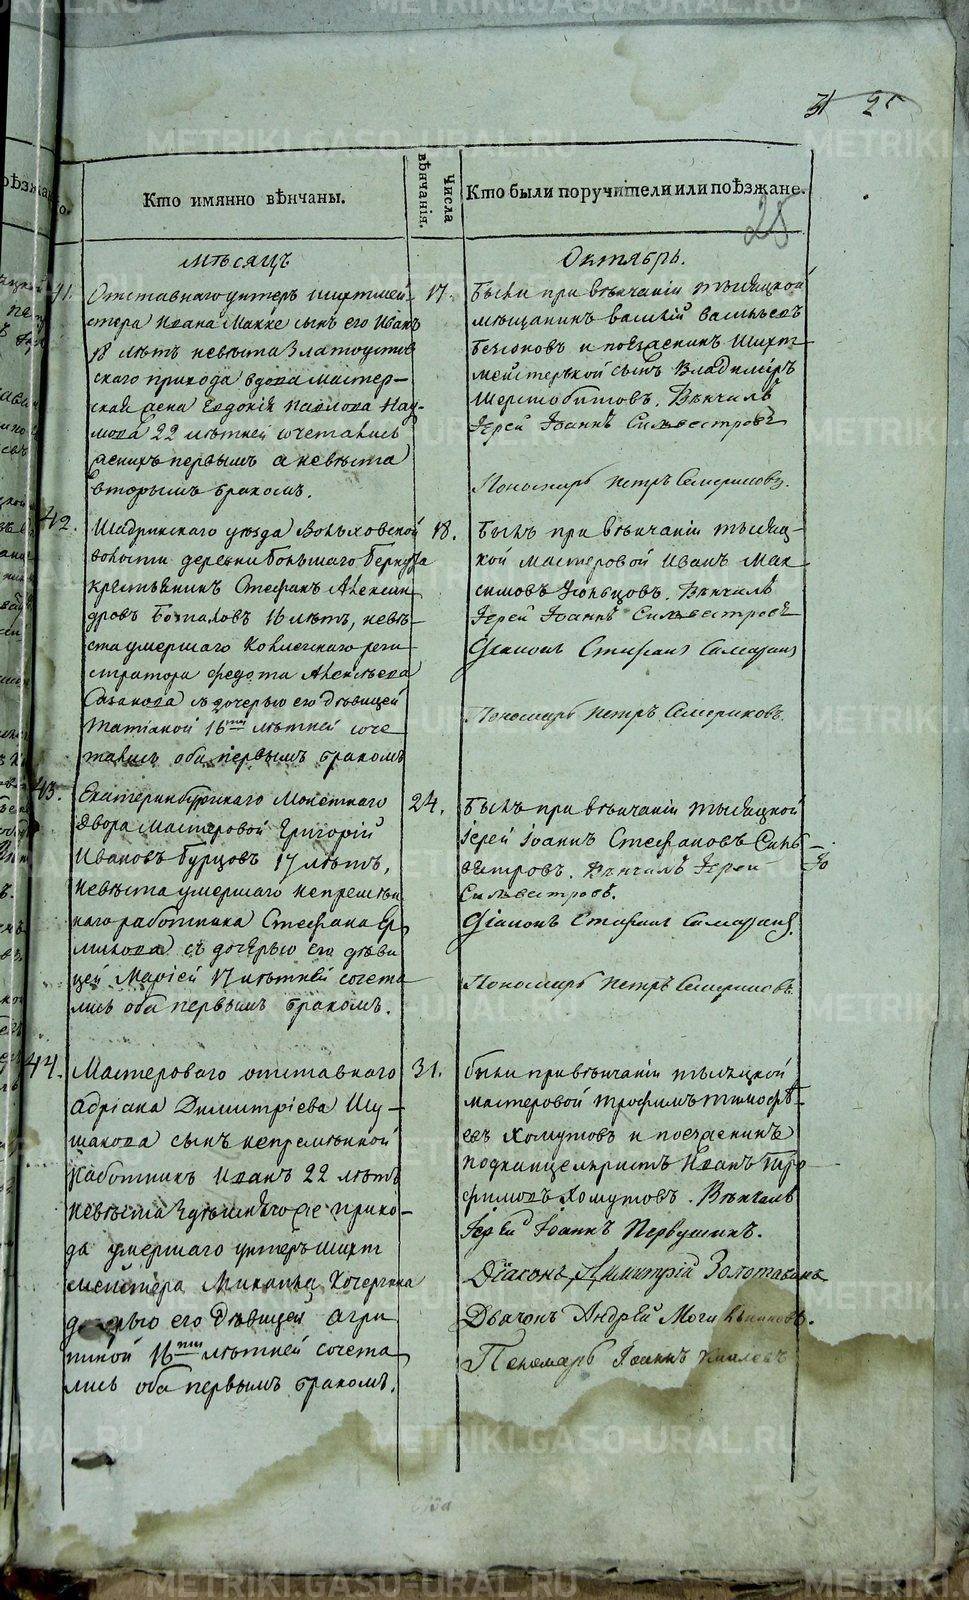 31 25
Кто имянно вѣнчаны.
Числа вѣнчанія.
Кто были поручители или поѣзжане.
25
мѣсяцъ
Октябрь.
41.
Отставнаго унтеръ шихтмей-
стера Ивана Макке сынъ его Иванъ
18 лѣтъ невѣста Златоустов
скаго прихода вдова мастер-
ская жена Евдокія Павлова Нау-
мова 22 лѣтней сочетались
женихъ первымъ а невѣста
вторымъ бракомъ.
17.
Были при вѣнчаніи тысяцкой
мѣщанинъ Василій Васильевъ
и поѣзжанинъ Шихт
мейстерской сынъ Владиміръ
Шерстобитовъ. Вѣнчилъ
Іерей Іоаннъ Сильвестровъ
Пономарь Петръ Семериковъ.
42.
Шадринскаго уѣзда
волости деревни большаго
крестьянинъ Стефанъ Алексан
дровъ 16 лѣтъ, невѣ-
ста умершаго Коллежскаго реги
стратора Федота Алексѣева
Сазанова съ дочерью его дѣвицей
Татіаной 16ти лѣтней соче
тались оба первымъ бракомъ
18.
Былъ при вѣнчаніи тысяц-
кой мастеровой Иванъ Мак
симовъ Удольцовъ. Вѣнчилъ
Іерей Іоаннъ Сильвестровъ
Діаконъ Стефанъ
Пономарь Петръ Семериковъ.
43.
Екатеринбургскаго Монетнаго
двора Мастеровой Григорій
Ивановъ Бурцовъ 17 лѣтъ,
невѣста умершаго непремѣн
наго работника Стефана Ер
микова съ дочерью его дѣви
цей Маріей 17 лѣтней сочета
лись оба первымъ бракомъ.
24.
Былъ при вѣнчаніи тысяцкой
Іерей Іоаннъ Стефановъ Силь
вестровъ. Вѣнчилъ Іерей
Сильвестровъ.
Діаконъ Стефанъ
Пономарь Петръ Семериковъ
44.
Мастероваго отставнаго
Адріана Димитріева Шу-
шакова сынъ непремѣнной
работникъ Иванъ 22 лѣтъ
невѣста прихо-
да умершаго унтеръ шихт
мейстера Михаила Кочергина
дочерью его дѣвицей Агри
пиной 16ти лѣтней сочета
лись оба первымъ бракомъ.
31.
были при вѣнчаніи тысяцкой
мастеровой Трофимъ Тимофѣ-
евъ Хомутовъ и поезжанинъ
подканцеляристъ Иванъ Тро
фимовъ Хомутовъ. Вѣнчалъ
Іерей Іоаннъ Первушинъ.
Діаконъ Димитрій Золотавинъ
Дьячокъ Андрей Могильниковъ.
Пономарь Іоаннъ
METRIKI.GASO-URAL.RU